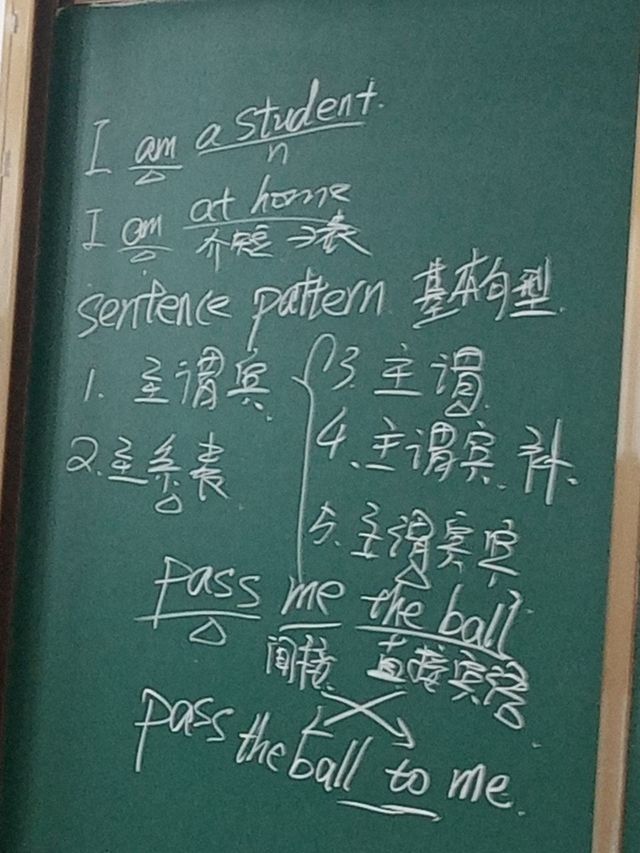 I am a student.
n
I am at home
介短→表
sentence pattern 基本句型
1. 主谓宾
2. 主系表
3. 主谓
4. 主谓宾 补
5. 主谓宾宾
pass me the ball
间接 直接宾语
pass the ball to me.